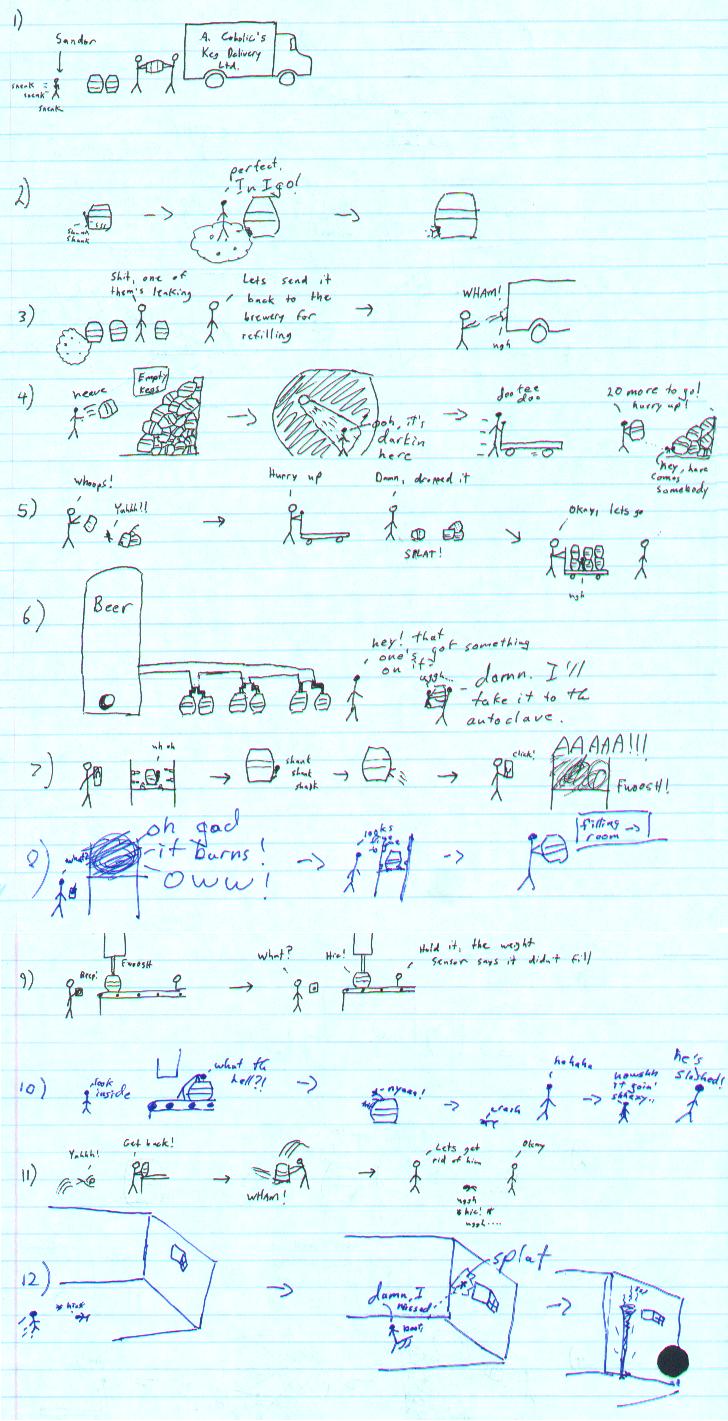 1)
Sandor
A. Coholic's
Keg Delivery
Ltd.
sneak
sneak
sneak
2)
perfect.
In I go!
shunk
3)
Shit, one of
them's leaking
Lets send it
back to the
brewery for
refilling
WHAM!
ugh
4)
heeve
Empty
Kegs
ooh, it's
dark in
here
doo tee
doo
20 more to go!
hurry up!
hey, here
comes
somebody
5)
Whoops!
Yahhh!!
Hurry up
Damn, dropped it
SPLAT!
Okay, lets go
ugh
6)
Beer
hey! that
one's got something
on it
uggh...
damn. I'll
take it to the
autoclave.
7)
uh oh
shunk
shunk
shunk
click!
AAAAA!!!
FWOOSH!
8)
what?
oh god
it burns!
OWW!
looks
fine
to me
filling
room →
9)
Beep!
FWOOSH
What?
Hic!
Hold it, the weight
sensor says it didn't fill
10)
look
inside
what the
hell?!
nyaaa!
crash
hahaha
howshh
it goin'
shhexy..
he's
sloshed!
11)
Yahhh!
Get back!
WHAM!
Lets get
rid of him
Okay
uggh
*hic!*
uggh....
12)
*hic*
damn, I
missed
splat